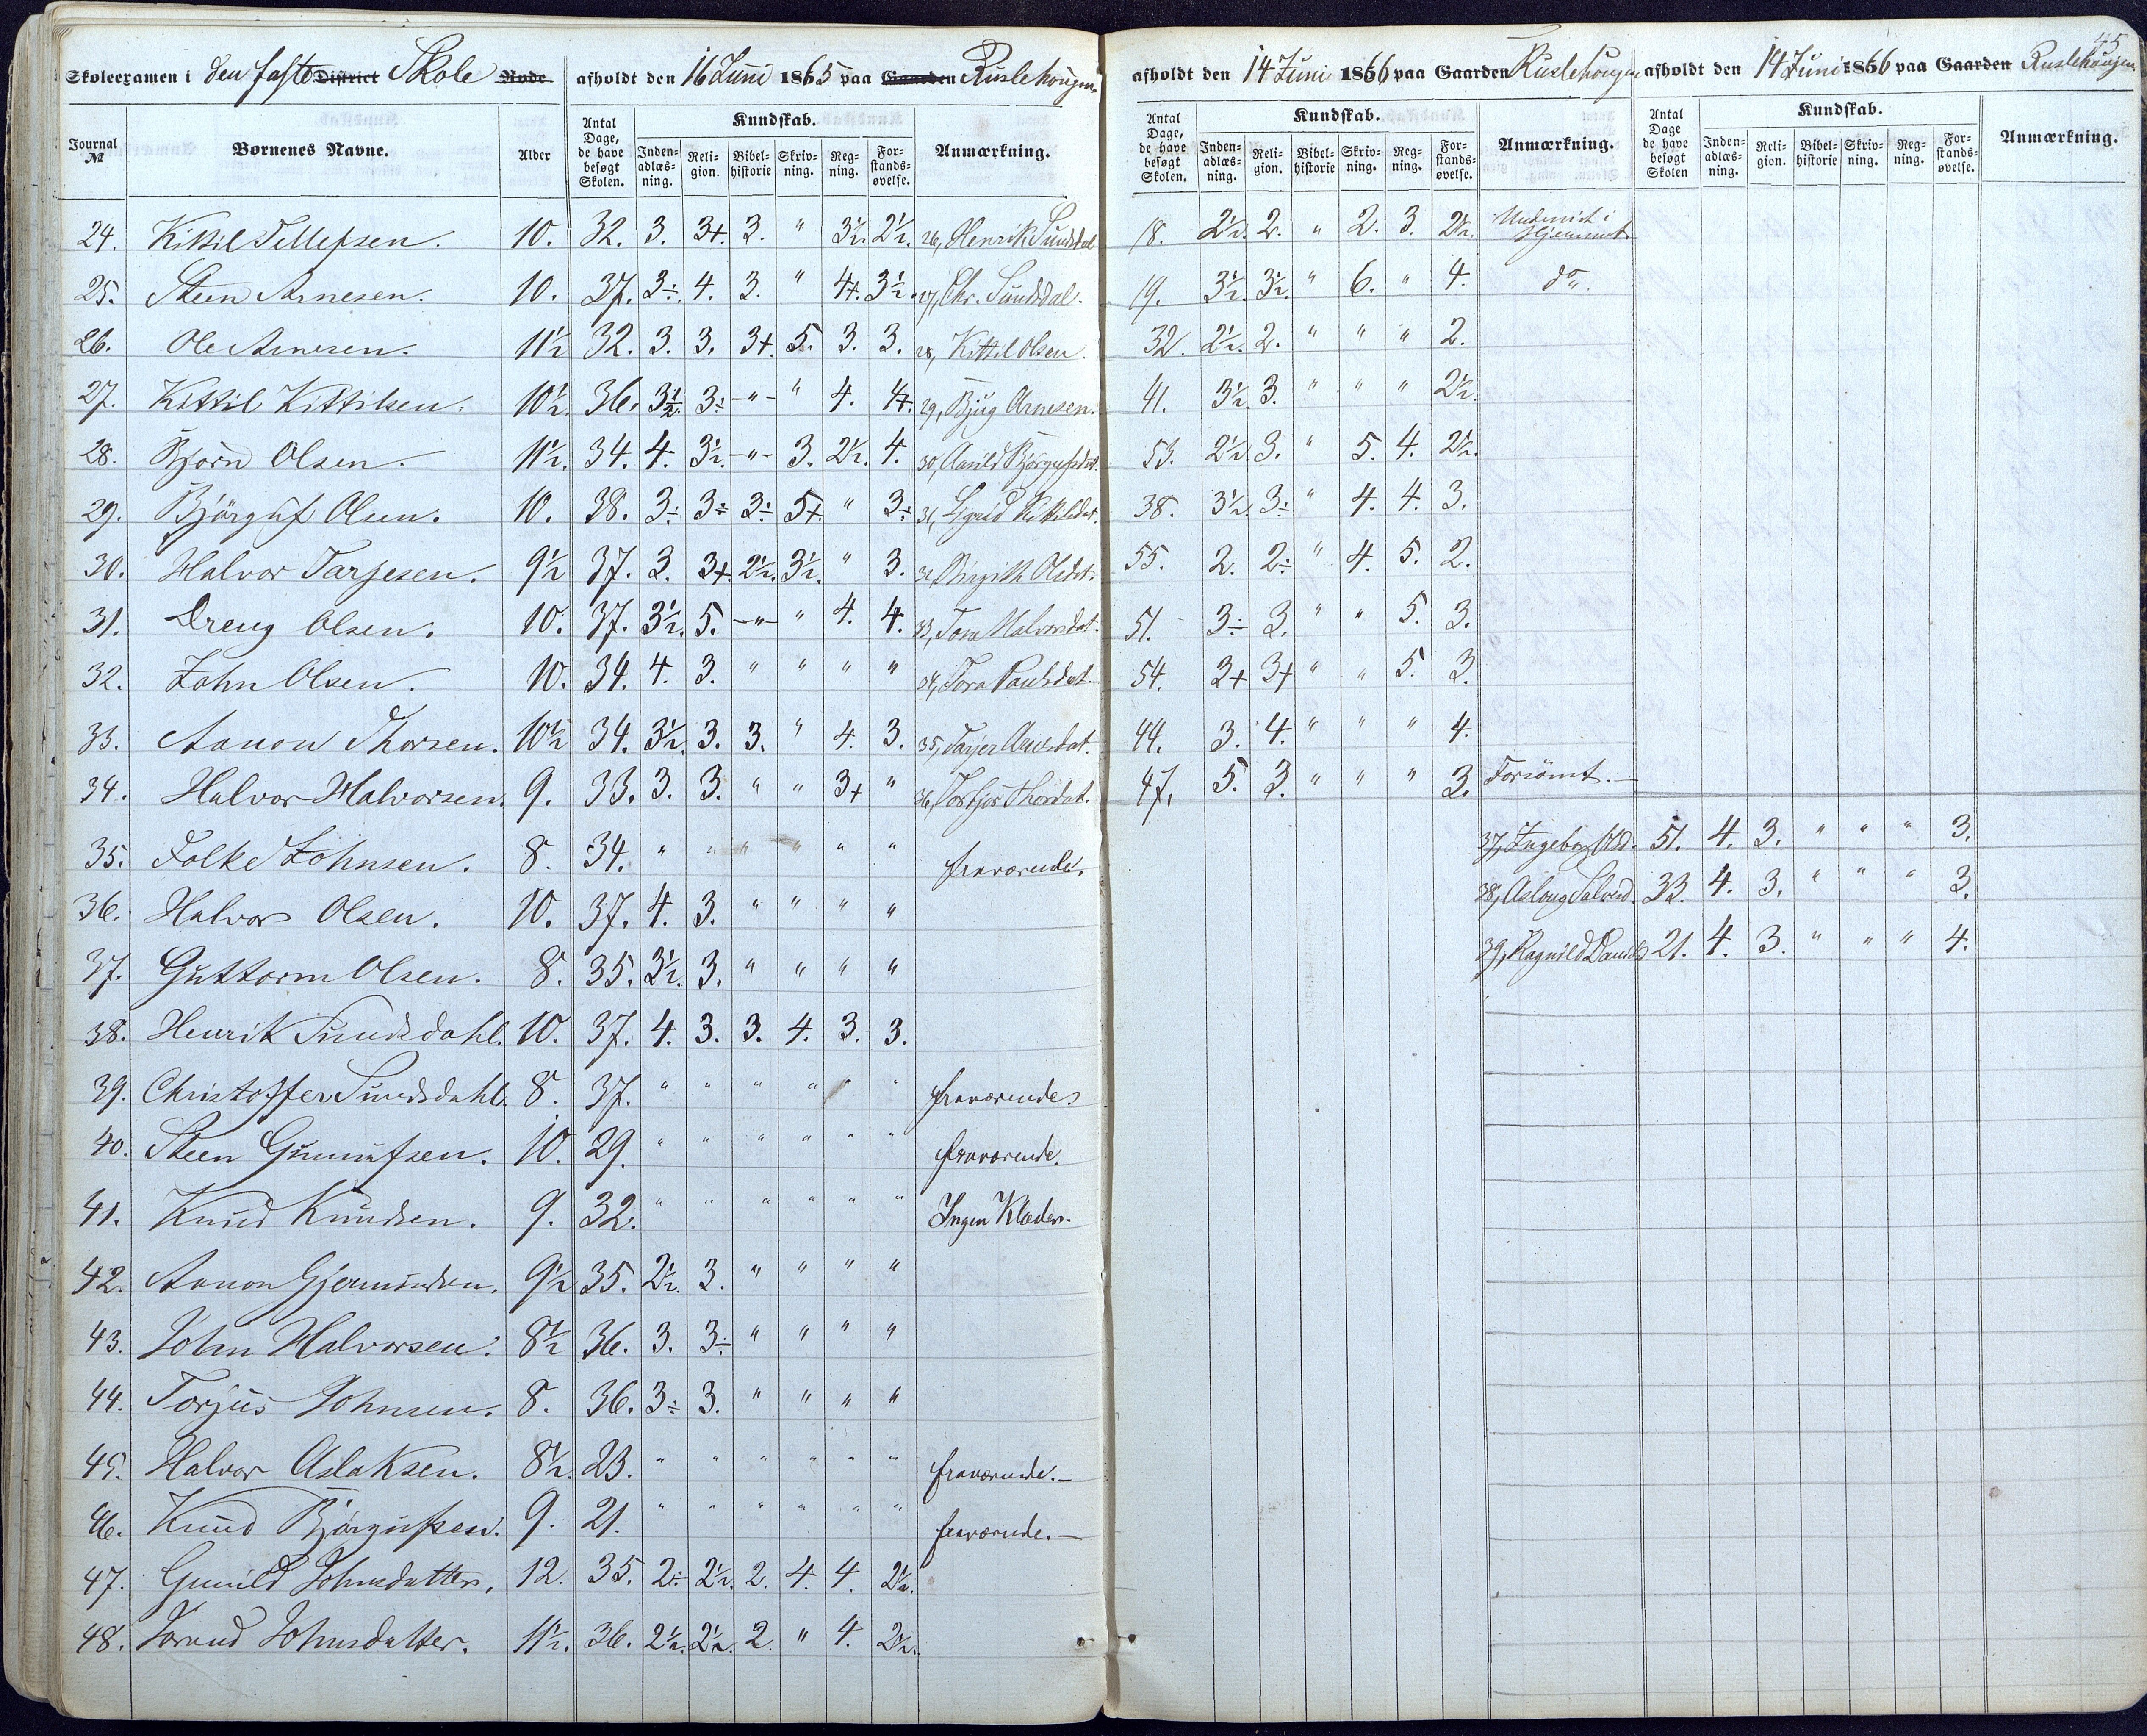 Skoleexamen i den faste District Skole Rode afholdt den 16 Juni 1865 paa Gaarden Ruslehougen
Journal № Børnenes Navne. Alder Antal Dage, de have besøgt Skolen. Kundskab. Inden-adlæs-ning. Reli-gion. Bibel-historie Skriv-ning. Reg-ning. For-stands-øvelse. Anmærkning.
24. Kittil Tellefsen. 10. 32. 3. 3+. 3. " 3½. 2½. 26, Henrik Sundsdal
25. Steen Arnesen. 10. 37. 3÷. 4. 3. " 4+. 3½. 27, Chr. Sundsdal.
26. Ole Arnesen. 11½ 32. 3. 3. 3+. 5. 3. 3. 28, Kittil Olsen.
27. Kittil Kittilsen. 10½. 36. 3½. 3÷ -"- " 4. 4+. 29, Bjug Arnesen.
28. Bjørn Olsen. 11½. 34. 4. 3½. -"- 3. 2½. 4. 30, Aasild Bjørgufsdat.
29. Bjørguf Olsen. 10. 38. 3÷ 3÷ 3÷ 5+. " 3÷ 31, Sigrid Kittilsdat.
30. Halvor Tarjesen. 9½ 37. 3. 3+. 2½. 3½. " 3. 32, Birgith Olsdat.
31. Dreng Olsen. 10. 37. 3½. 5. -"- " 4. 4. 33, Tora Halvorsdat.
32. John Olsen. 10. 34. 4. 3. " " " " 34, Tora Paulsdat.
33. Aanon Thorsen. 10½ 34. 3½. 3. 3. " 4. 3. 35, Tarjer Aanesdat.
34. Halvor Halvorsen. 9. 33. 3. 3. " " 3+ " 36, Torbjør Thorsdat.
35. Folke Johnsen. 8. 34. " " " " " " fraværende.
36. Halvor Olsen. 10. 37. 4. 3. " " " "
37. Guttorm Olsen. 8. 35. 3½. 3. " " " "
38. Henrik Sundsdahl. 10. 37. 4. 3. 3. 4. 3. 3.
39. Christoffer Sundsdahl. 8. 37. " " " " " " fraværende
40. Steen Gunnufsen. 10. 29. " " " " " " fraværende.
41. Knud Knudsen. 9. 32. " " " " " " Ingen Klæder.
42. Aanon Gjermundsen. 9½ 35. 2½. 3. " " " "
43. John Halvorsen. 8½ 36. 3. 3÷ " " " "
44. Torjus Johnsen. 8. 36. 3÷ 3. " " " "
45. Halvor Aslaksen. 8½. 23. " " " " " " fraværende.—
46. Knud Bjørgufsen. 9. 21. " " " " " " fraværende.—
47. Gunild Johnsdatter. 12. 35. 2÷ 2½. 2. 4. 4. 2½.
48. Jorand Johnsdatter. 11½. 36. 2½. 2½. 2. " 4. 2½.
45
afholdt den 14 Juni 1866 paa Gaarden Ruslehougen afholdt den 14 Juni 1866 paa Gaarden Ruslehougen
Antal Dage, de have besøgt Skolen. Kundskab. Inden-adlæs-ning. Reli-gion. Bibel-historie Skriv-ning. Reg-ning. For-stands-øvelse. Anmærkning. Antal Dage de have besøgt Skolen Kundskab. Inden-adlæs-ning. Reli-gion. Bibel-historie Skriv-ning. Reg-ning. For-stands-øvelse. Anmærkning.
18. 2½. 2. " 2. 3. 2½. Underviist i Hjemmet
19. 3½. 3½. " 6. " 4. do.
32. 2½. 2. " " " 2.
41. 3½. 3. " " " 2½.
53. 2½. 3. " 5. 4. 2½.
38. 3½. 3÷ " 4. 4. 3.
55. 2. 2÷ " 4. 5. 2.
51. 3÷ 3. " " 5. 3.
54. 2+ 3+ " " 5. 3.
44. 3. 4. " " " 4.
47. 5. 3. " " " 3. Forsömt.—
37, Ingeborg Olsd. 51. 4. 3. " " " 3.
38, Aslaug Salved. 33. 4. 3. " " " 3.
39, Ragnild Daniels 21. 4. 3. " " " 4.